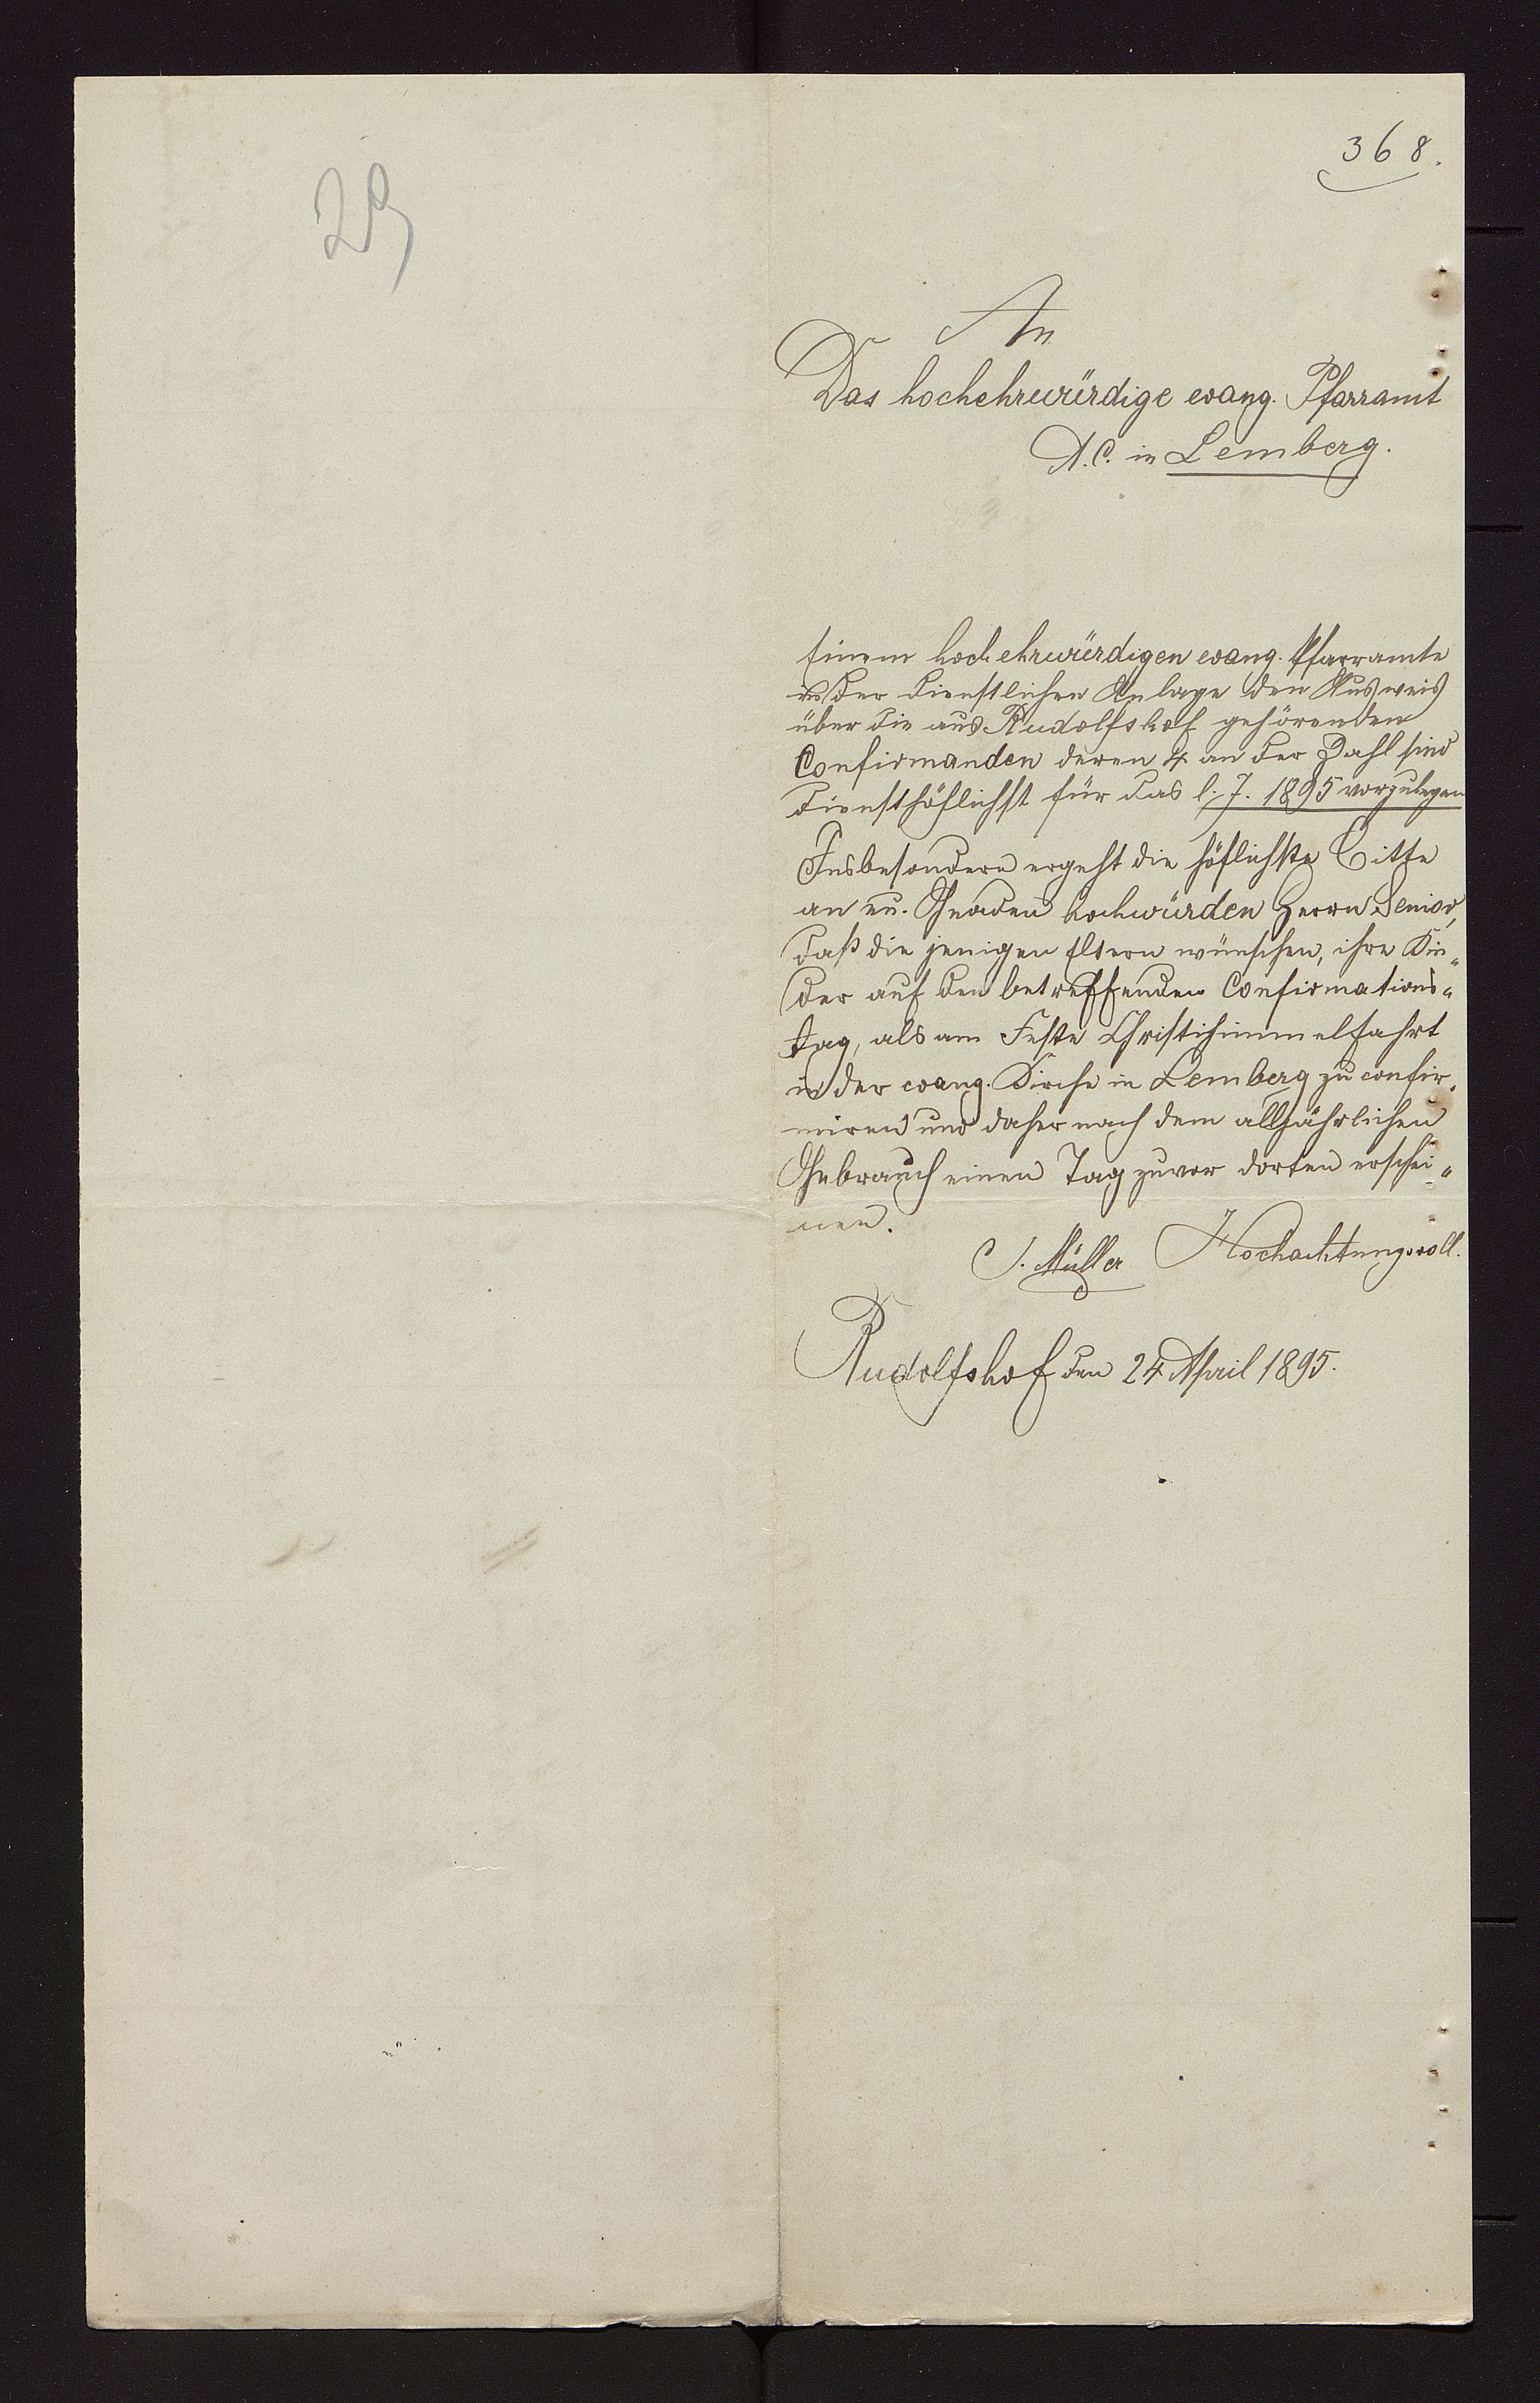 29
368.
An
Das hochehrwürdige evang. Pfarramt
A.C. in Lemberg.
Einem hochehrwürdigen evang. Pfarramte
in der dienstlichen Anlage den Ausweis
über die aus Rudolfshof gehörenden
Confirmanden deren 4 an der Zahl sind
diensthöflichst für das l. J. 1895 vorzulegen
Insbesondere ergeht die höflichste Bitte
an eu. Gnaden hochwürden Herrn Senior,
daß die jenigen Eltern wünschen, ihre Kin-
der auf den betreffenden Confirmations-
tag, als am Feste Christihimmelfahrt
in der evang. Kirche in Lemberg zu confir-
miren und daher nach dem alljährlichen
Gebrauch einen Tag zuvor dorten erschei-
nen.
J. Müller Hochachtungsvoll.
Rudolfshof den 24 April 1895.